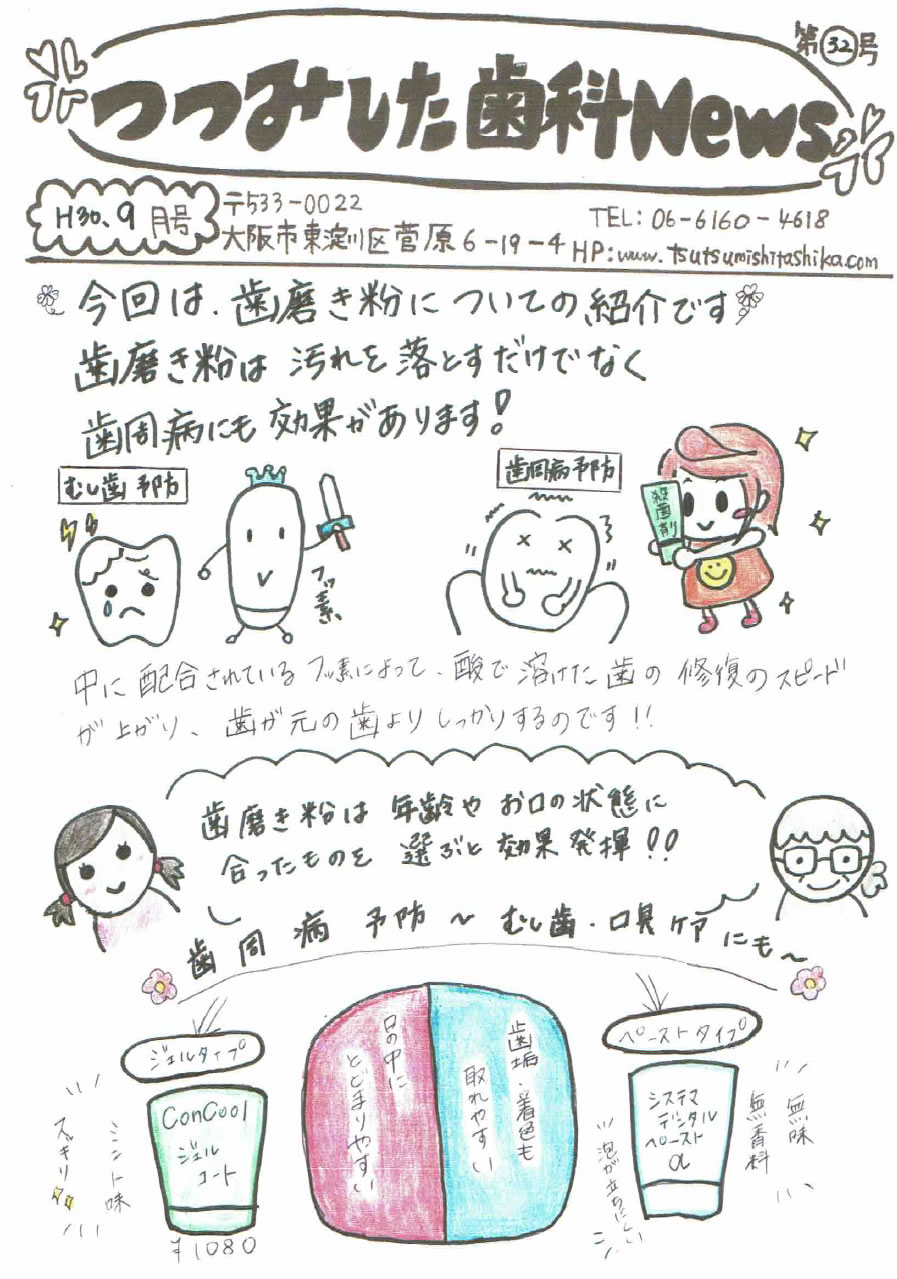 第32号
つつみした歯科News
H30.9月号
〒533-0022
大阪市東淀川区菅原6-19-4
TEL: 06-6160-4618
HP: www.tsutsumishitashika.com
今回は、歯磨き粉についての紹介です
歯磨き粉は汚れを落とすだけでなく
歯周病にも効果があります!
むし歯予防
フッ素
歯周病予防
殺菌剤
中に配合されているフッ素によって、酸で溶けた歯の修復のスピード
が上がり、歯が元の歯よりしっかりするのです!!
歯磨き粉は年齢やお口の状態に
合ったものを選ぶと効果発揮!!
歯周病予防~むし歯・口臭ケアにも~
ジェルタイプ
ConCool
ジェル
コート
¥1080
ミント味
スッキリ
口の中に
とどまりやすい
歯垢・着色も
取れやすい
ペーストタイプ
システマ
デンタル
ペースト
α
泡が立ちにくい
無味
無香料